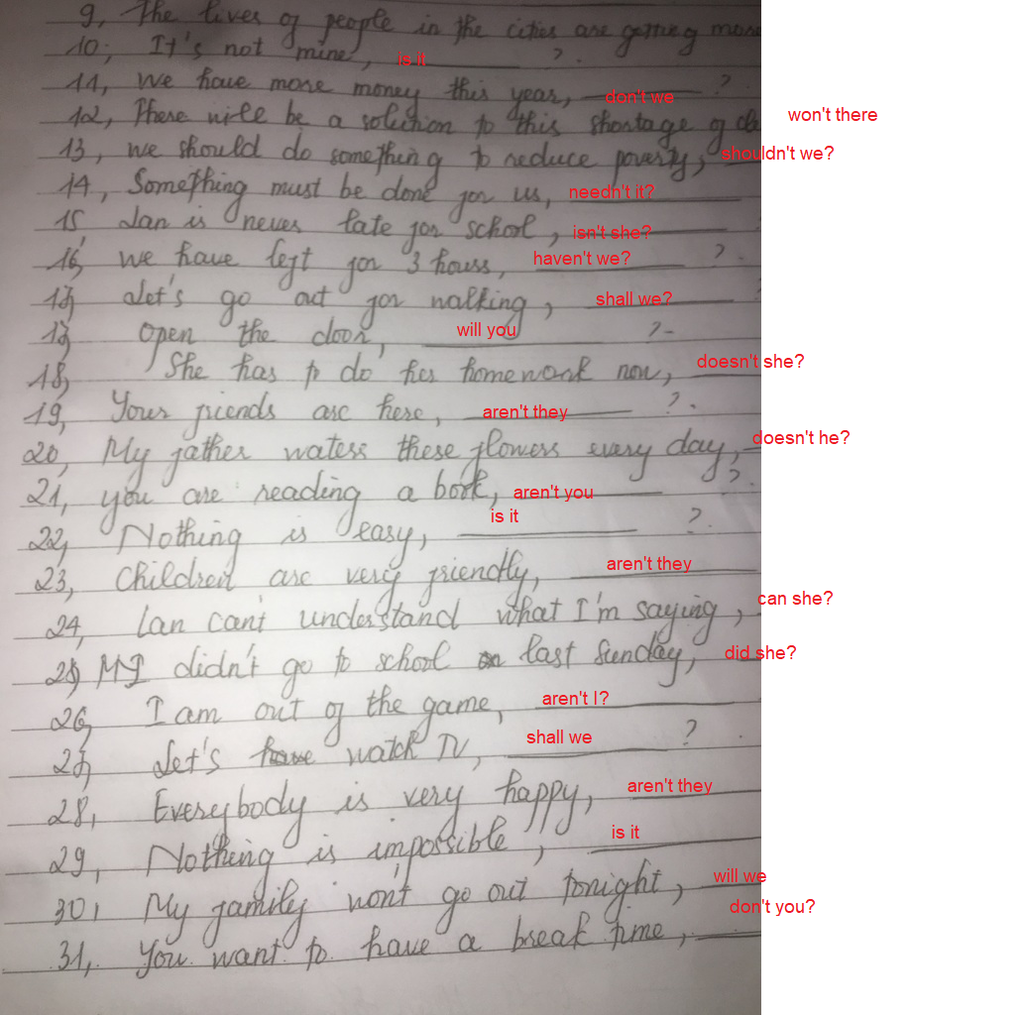 9, The lives of people in the cities are getting more
10, It's not mine, is it ?.
11, we have more money this year, don't we ?
12, There will be a solution to this shortage of won't there
13, we should do something to reduce poverty, shouldn't we?
14, Something must be done for us, needn't it?
15 Lan is never late for school, isn't she?
16, we have left for 3 hours, haven't we? ?.
17, Let's go out for walking, shall we? ?
17, Open the door, will you ?-
18, She has to do her homework now, doesn't she?
19, Your friends are here, aren't they ?.
20, My father waters these flowers every day, doesn't he?
21, you are reading a book, aren't you ?.
22, Nothing is easy, is it ?.
23, Children are very friendly, aren't they
24, Lan can't understand what I'm saying, can she?
25, didn't go to school last Sunday, did she?
26, I am out of the game, aren't I?
27, Let's watch TV, shall we ?
28, Everybody is very happy, aren't they
29, Nothing is impossible, is it
30, My family won't go out tonight, will we
31, You want to have a break time, don't you?